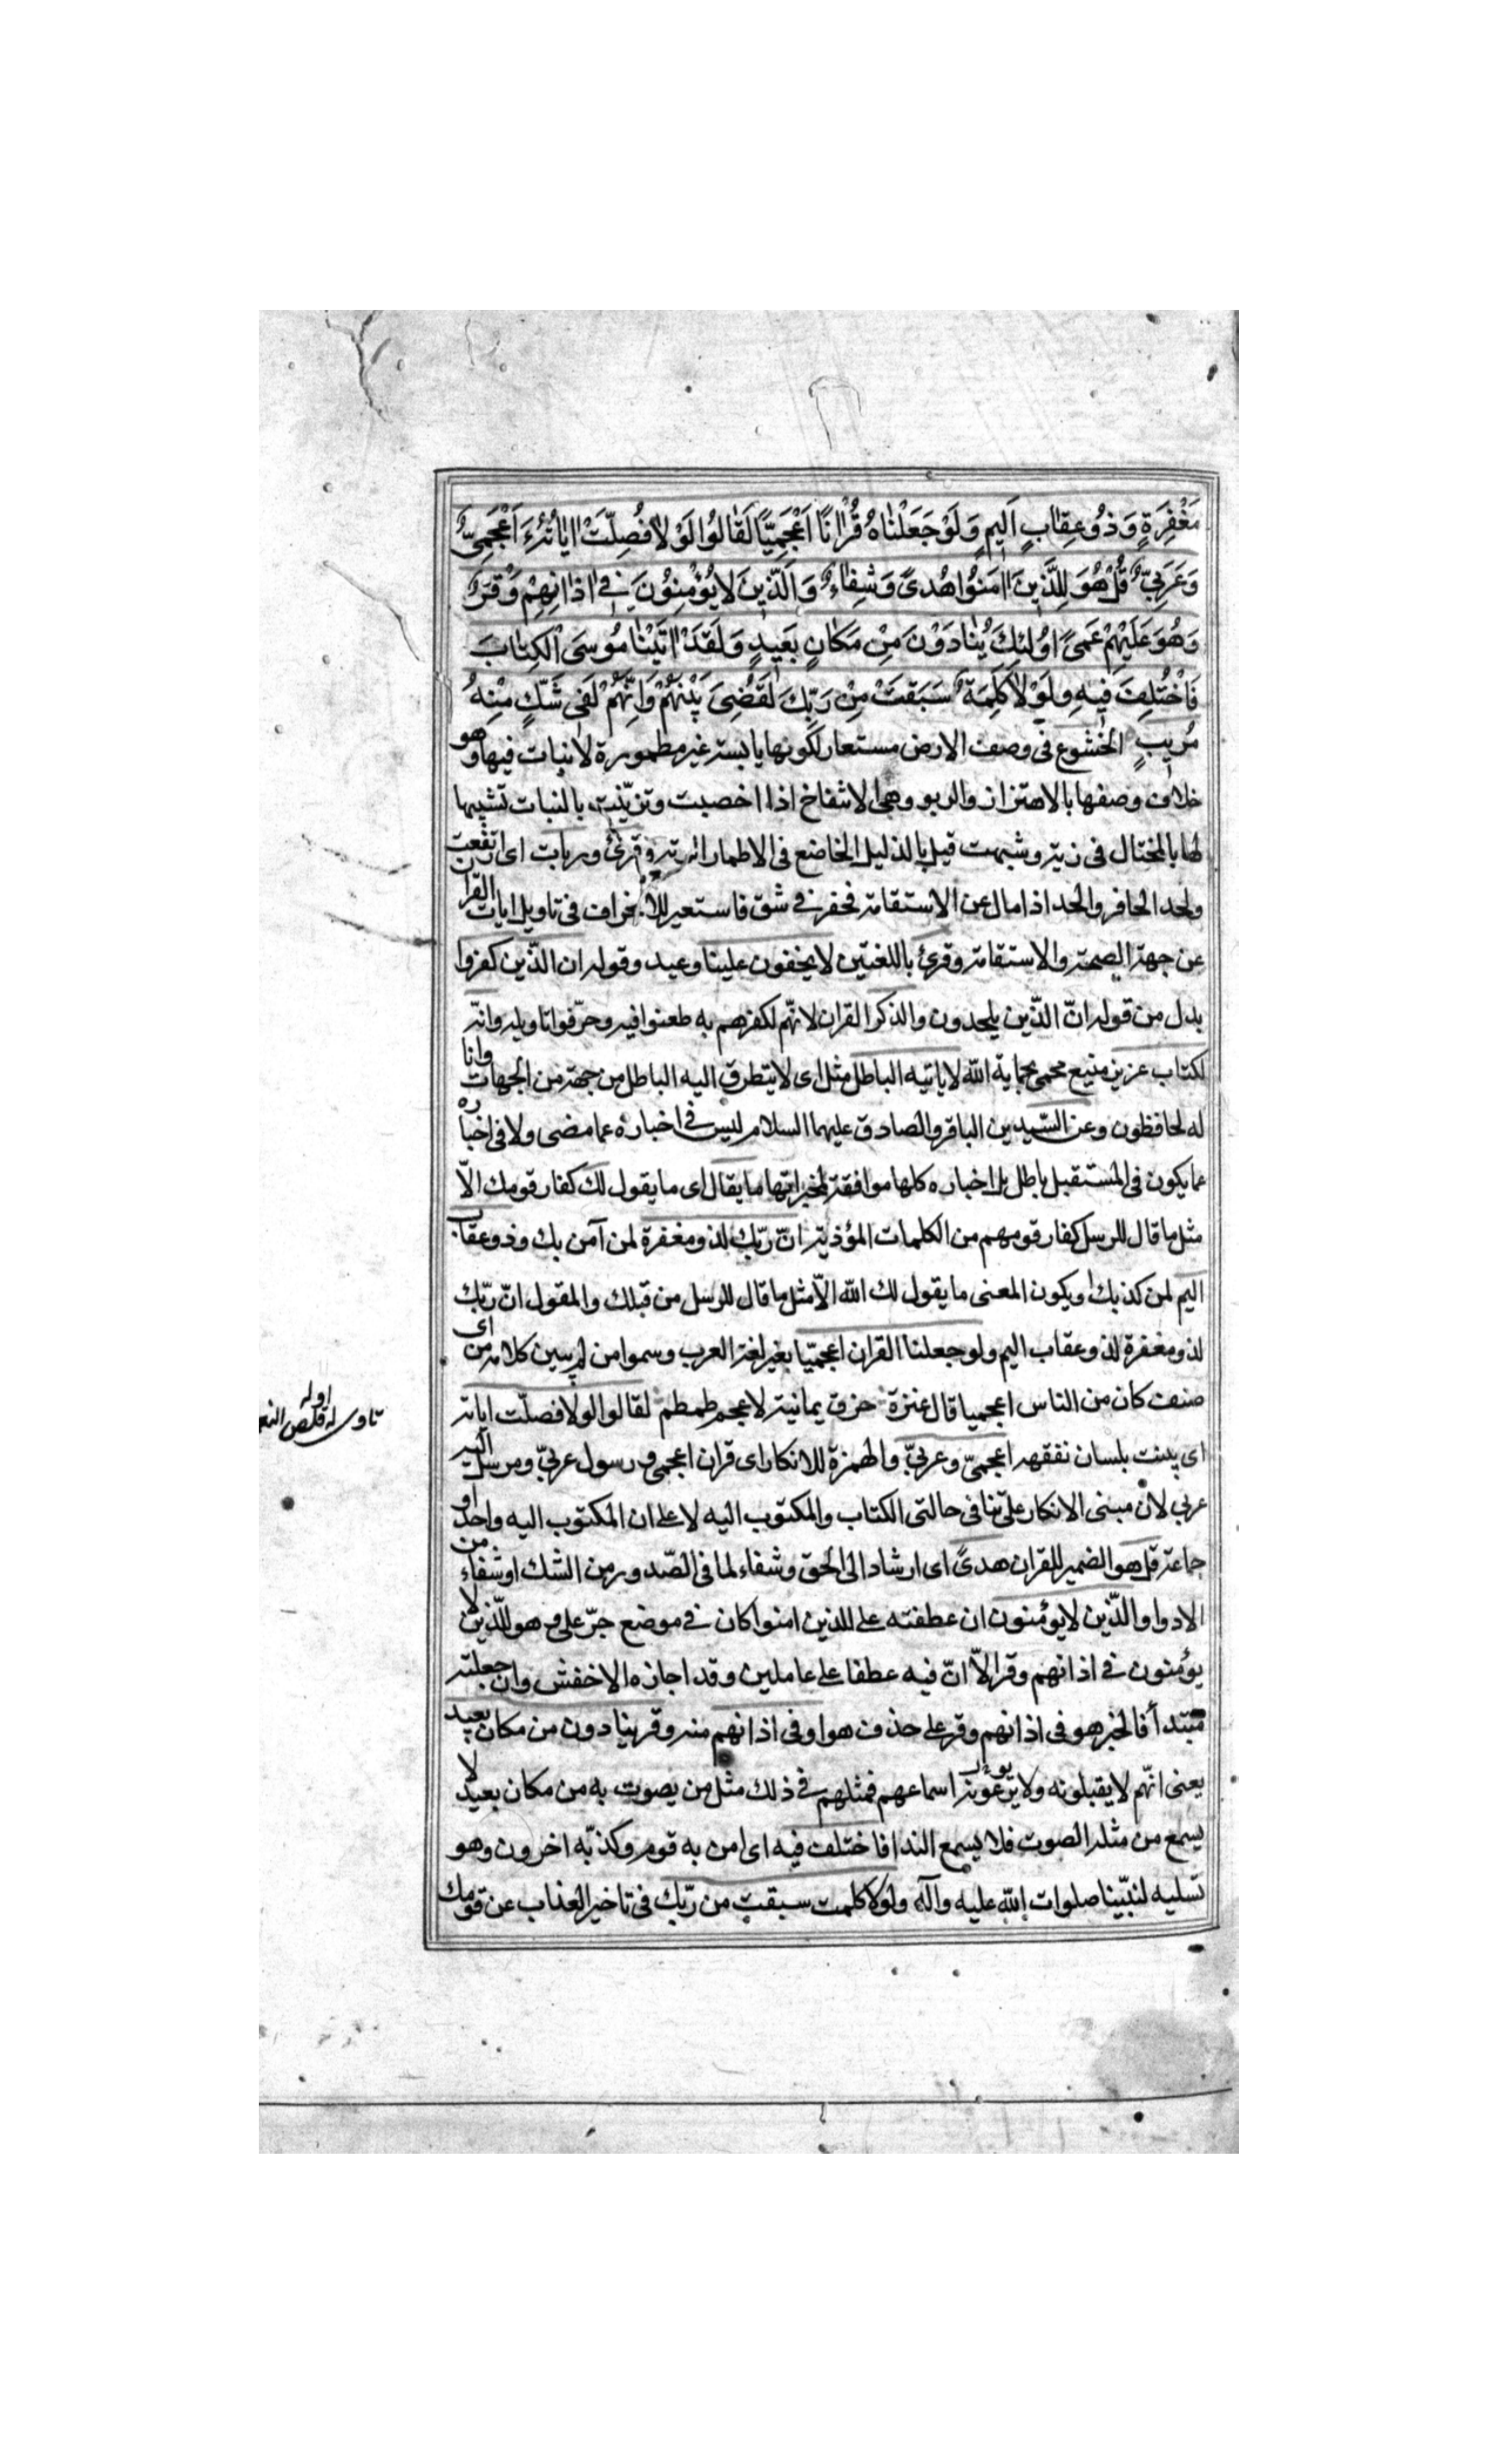 مَغْفِرَةٍ وَذُوعِقٰابٍ اَلِيمٍ وَلَوْجَعَلْنٰاهُ قُرْاٰنًا اَعْجَمِيًّا لَقٰالُوا لَوْلٰا فُصِّلَتْ اٰيٰاتُهُ ءَاَعْجَمِيٌّ
وَعَرَبِيٌّ قُلْ هُوَ لِلَّذِينَ اٰمَنُوا هُدىً وَشِفٰاءٌ وَالَّذِينَ لٰا يُؤْمِنُونَ فِي اٰذٰانِهِمْ وَقْرٌ
وَهُوَ عَلَيْهِمْ عَمىً اوُلٰئِكَ يُنٰادَوْنَ مِنْ مَكٰانٍ بَعِيدٍ وَلَقَدْ اٰتَيْنٰا مُوسَى الْكِتٰابَ
فَاخْتُلِفَ فِيهِ وَلَوْلٰا كَلِمَةٌ سَبَقَتْ مِنْ رَبِّكَ لَقُضِىَ بَيْنَهُمْ وَاِنَّهُمْ لَفِى شَكٍّ مِنْهُ
مُرِيبٍ الخشوع فى وصف الارض مستعار لكونها يابسة غير مطمورة لانبات فيها وهو
خلاف وصفها بالاهتزاز والربو وهى الانتفاخ اذا اخصبت وتزيّنت بالنبات تشبيها
لها بالمختال فى زيه وشبهت قبل بالذليل الخاضع فى الاطمار الرثة وقرئ وربات اى ارتفعت
ولحد الحافر والحد اذا مال عن الاستقامة فحفر فى شق فاستعير للانحراف فى تاويل ايات القران
عن جهة الصحة والاستقامة وقرئ باللغتين لا يخفون علينا وعيد وقوله ان الذّين كفروا
بدل من قوله انّ الذّين يلحدون والذكر القران لانهّم لكفرهم به طعنوا فيه وحرّفوا تاويله وانّه
لكتاب عزيز منيع محمى بحماية الله لا ياتيه الباطل مثل اى لا يتطرق اليه الباطل من جهة من الجهات وانا
له لحافظون وعن السّيدين الباقر والصادق عليهما السلام ليس فى اخباره عما مضى ولا فى اخباره
عما يكون فى المستقبل باطل بل اخباره كلها موافقة لمخبراتها ما يقال اى ما يقول لك كفار قومك الاّ
مثل ما قال للرسل كفار قومهم من الكلمات المؤذية انّ ربّك لذو مغفرة لمن آمن بك وذوعقاب
اليم لمن كذبك ويكون المعنى ما يقول لك الله الاّ مثل ما قال للرسل من قبلك والمقول انّ ربّك
لذو مغفرة لذو عقاب اليم ولو جعلنا القران اعجميّا بغير لغة العرب وسموا من لم يبين كلامه من اى
صنف كان من الناس اعجميا قال عنترة حزق يمانية لاعجم طمطم لقالوا لولا فصلّت اياته
اى بينت بلسان نفقهه اعجميّ وعربيّ والهمزة للانكار اى قران اعجمى و رسول عربيّ ومرسل اليه
عربى لان مبنى الانكار على تنافى حالتى الكتاب والمكتوب اليه لا على ان المكتوب اليه واحد او
جماعة قل هو الضمير للقران هدىً اى ارشاد الى الحق وشفاء لما فى الصّدور من الشك او شفاء من
الادواء والذّين لا يؤمنون ان عطفته على للذين امنوا كان فى موضع جرّ على و هو للذّين لا
يؤمنون فى اذانهم وقر الاّ انّ فيه عطفا على عاملين وقد اجازه الاخفش وان جعلته
مبتدأ فالخبر هو فى اذانهم وقر على حذف هو او فى اذانهم منه وقر ينادون من مكان بعيد
يعنى انهّم لا يقبلونه ولا يرعونه اسماعهم فمثلهم فى ذلك مثل من يصوت به من مكان بعيد لا
يسمع من مثله الصوت فلا يسمع الندا فاختلف فيه اى امن به قوم وكذبّه اخرون وهو
تسليه لنبيّنا صلوات الله عليه وآله ولولا كلمت سبقت من ربّك فى تاخير العذاب عن قومك
اوله
تاوى له قلص النعـ